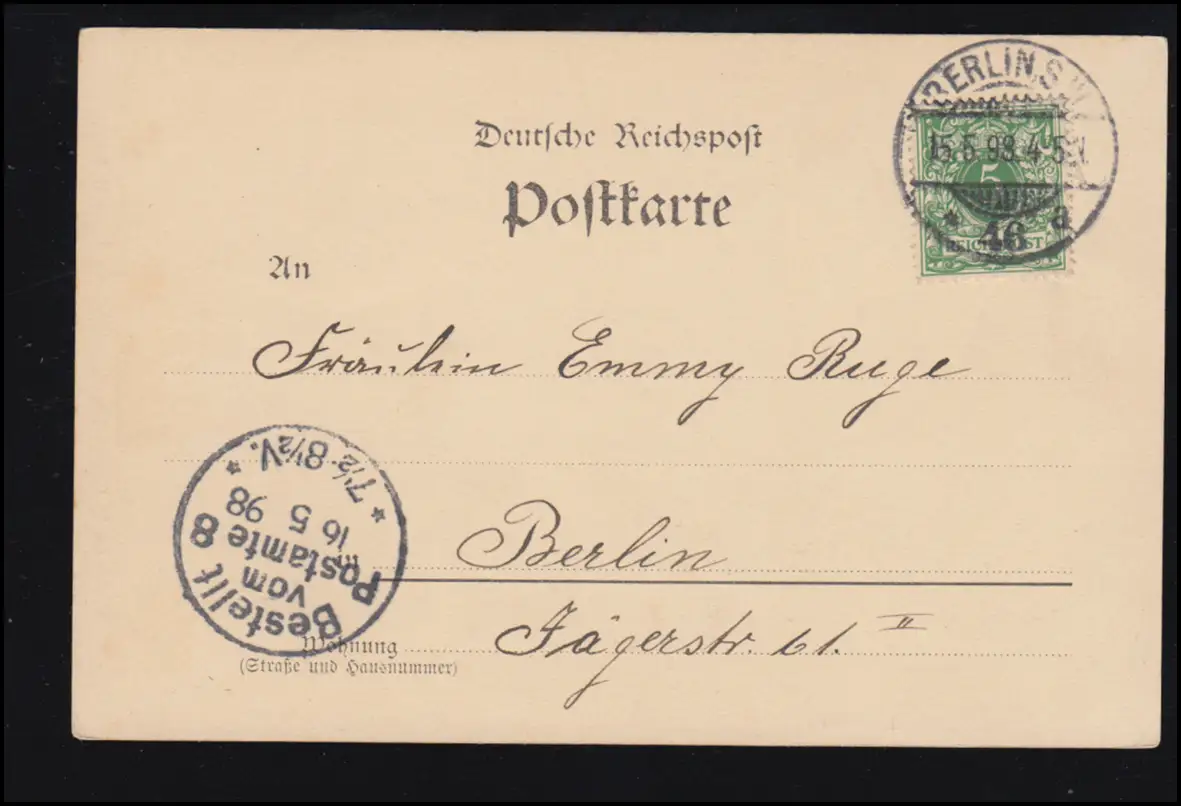 Deutsche Reichspost
Postkarte
BERLIN, S.W.
15.5.98.4-5N.
5
* 46 a
REICHSPOST
An
Fräulein Emmy Ruge
in Berlin
Wohnung Jägerstr. 61. II
(Straße und Hausnummer)
Bestellt
vom
Postamte 8
16 5 98
* 7½-8½V. *